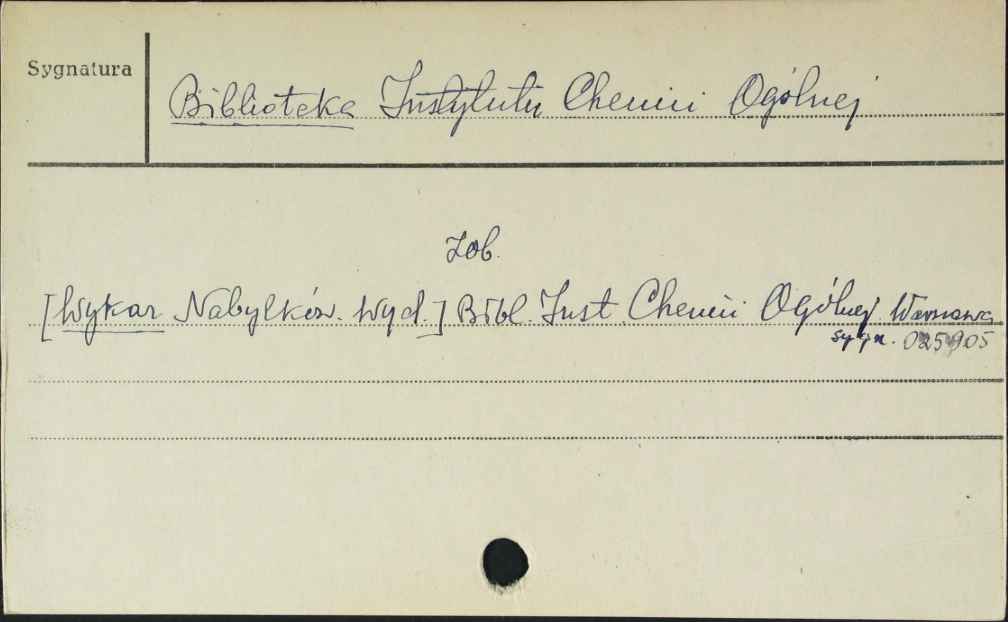 Sygnatura
Biblioteka Instytutu Chemii Ogólnej
Zob.
[Wykaz Nabytków. Wyd.] Bibl. Inst. Chemii Ogólnej Warszawa
sygn. 025905